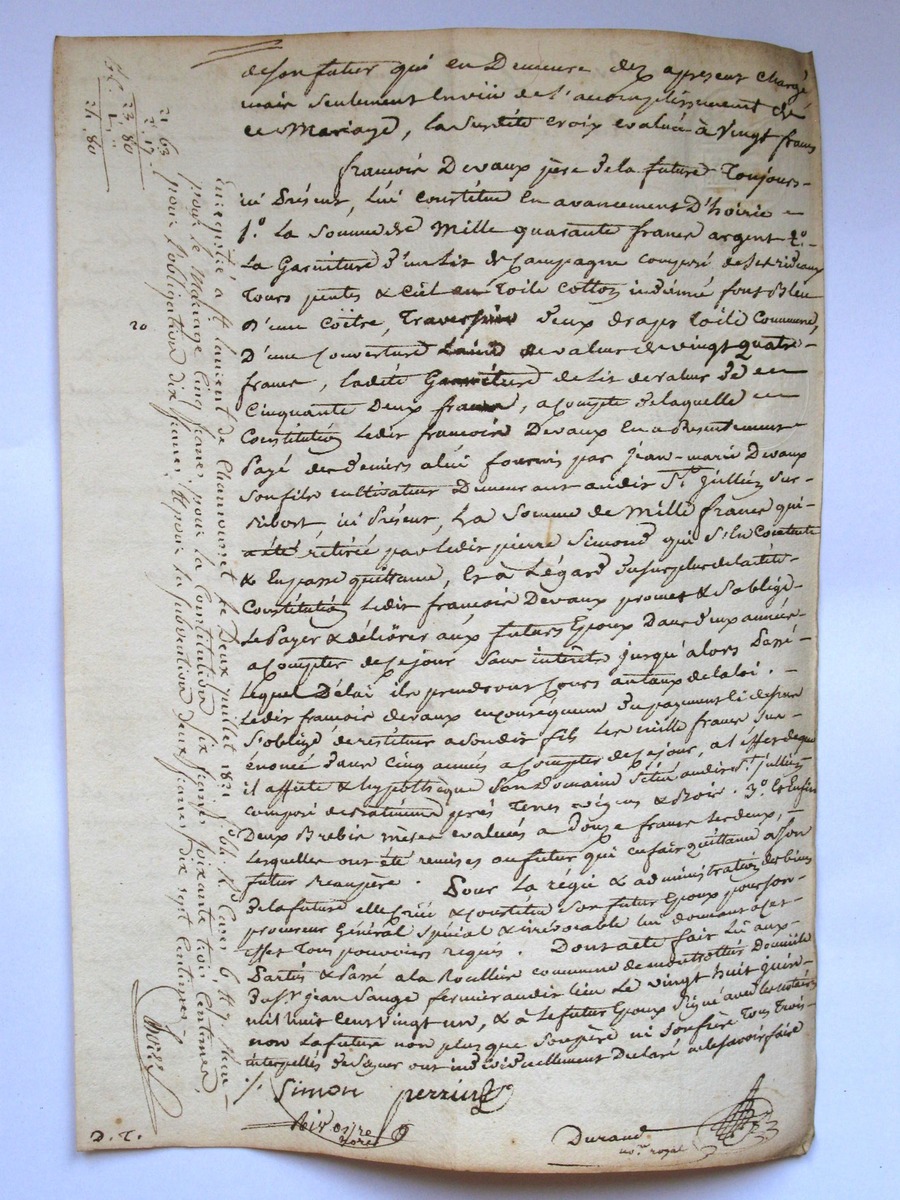 de son futur qui en Demeure dez apresent chargé
mais seulement Envüe de l'accomplissement de
ce Mariage, la susdite croix evaluée à vingt francs
françois Devaux père de la future Toujours
ici Présent, lui constitue En avancement D'hoirie
1.° La Somme de Mille quarante francs argent 2.°
La Garniture d'un Lit de Campagne composé de rideaux
Tours pentes & Ciel en Toile Cotton indienne fond Bleu
D'une Coëtre, Traversier deux draps Toile Commune,
D'une couverture Laine de valeur de vingt quatre
francs, ladite Garniture de Lit de valeur de
Cinquante Deux francs, acompte de laquelle
Constitution Ledit françois Devaux En a Présentement
Payé des deniers a lui fournis par Jean-marie Devaux
son fils cultivateur Demeurant audit St. Jullien sur
Bibost, ici Présent, La Somme de Mille francs qui
a été retirée par ledit pierre Simond qui S'En Contente
& En passe quittance, Et à L'égard du surplus de ladite
Constitution Ledit françois Devaux promet & S'oblige
Le Payer & délivrer aux futurs Epoux Dans deux années
acompter de ce jour Sans intérêts jusqu'alors Passé
Lequel Délai ils prendront Cours au taux de la loi.
Ledit françois devaux en conséquence du payement ci dessus
S'oblige de restituer a sondit fils Les mille francs sus
énoncé dans Cinq années a compter de ce jour, a l'effet de quoi
il affecte & hypothèque Son Domaine Situé audit St. jullien
composé de Batiments prés Terres vignes & Bois. 3.° Et Enfin
Deux Brebis mères evaluées a Douze francs Les deux,
Lesquelles ont été remises au futur qui en fait quittance a son
futur Beaupère. Pour La régie & administration des biens
de la future elle crée & constitue son futur Epoux pour son
procureur Général Spécial & irrévocable lui donnant à cet
effet Tous pouvoirs requis. Dont acte fait Lu aux
Parties & Passé a la commune de montrottier Domicile
du Sr. jean Sauge fermier audit lieu Le vingt huit juin
mil huit Cent vingt un, & à Le futur Epoux Signé avec les notaires
non La future non plus que son père ni son frère Tous Trois
interpellés de Signer ont individuellement Declaré ne le savoir faire
Simon perrier
Durand
no.re royal
D. T.
20
Enregistré a St. laurent de Chamousset le Deux juillet 1821
pour le Mariage cinq francs, pour la Constitution six francs soixante trois Centimes,
pour l'obligation dix francs, Et pour la subvention deux francs dix sept Centimes
21 63
2. 17
23. 80
24. 80